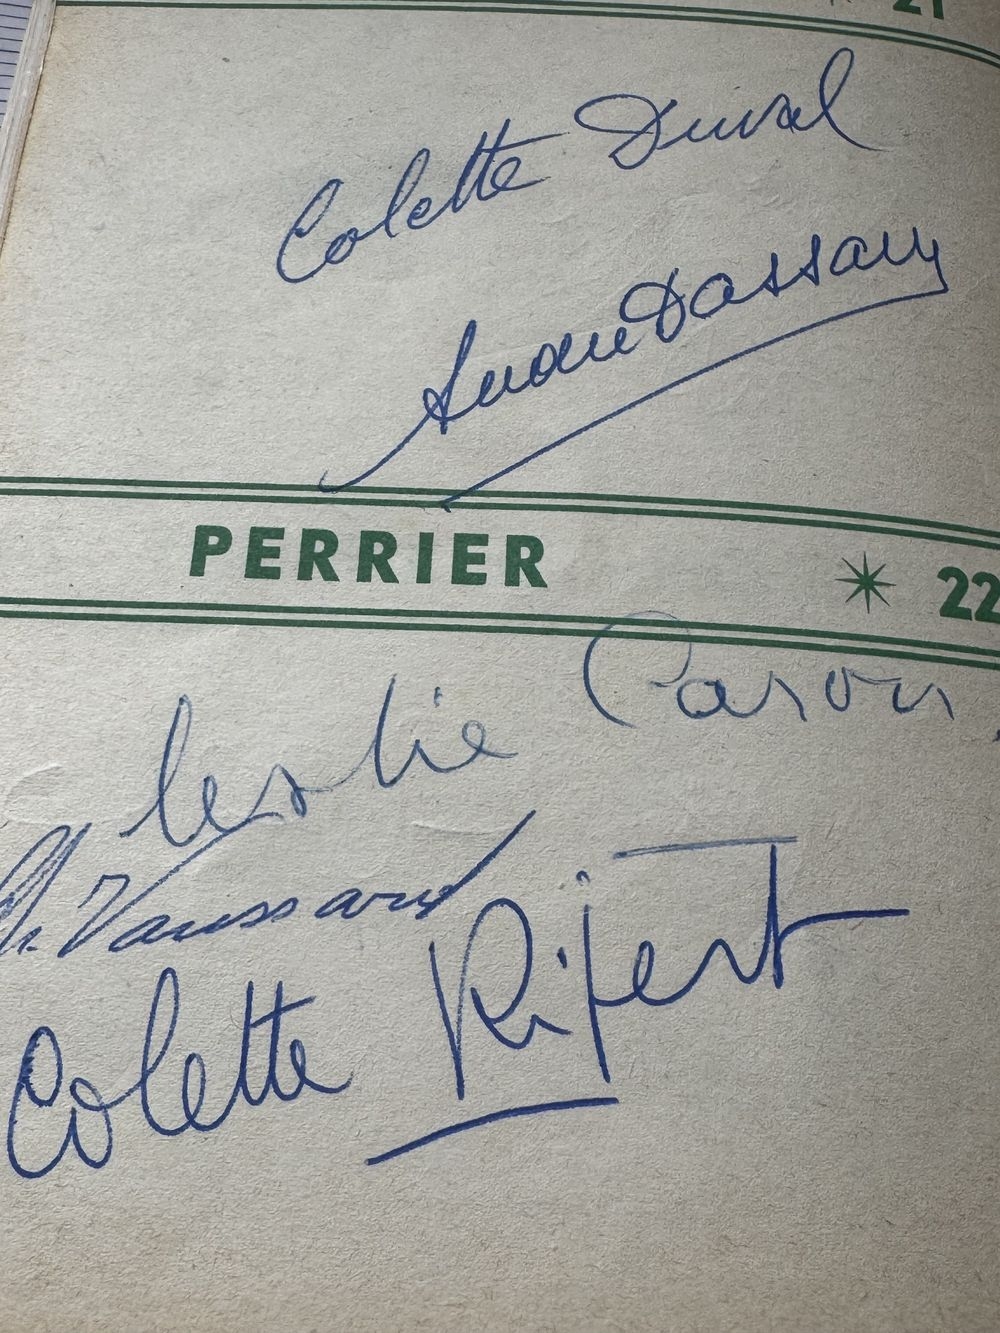 21
Colette Duval
Dassary
PERRIER 22
Leslie Caron
Vaussard
Colette Ripert